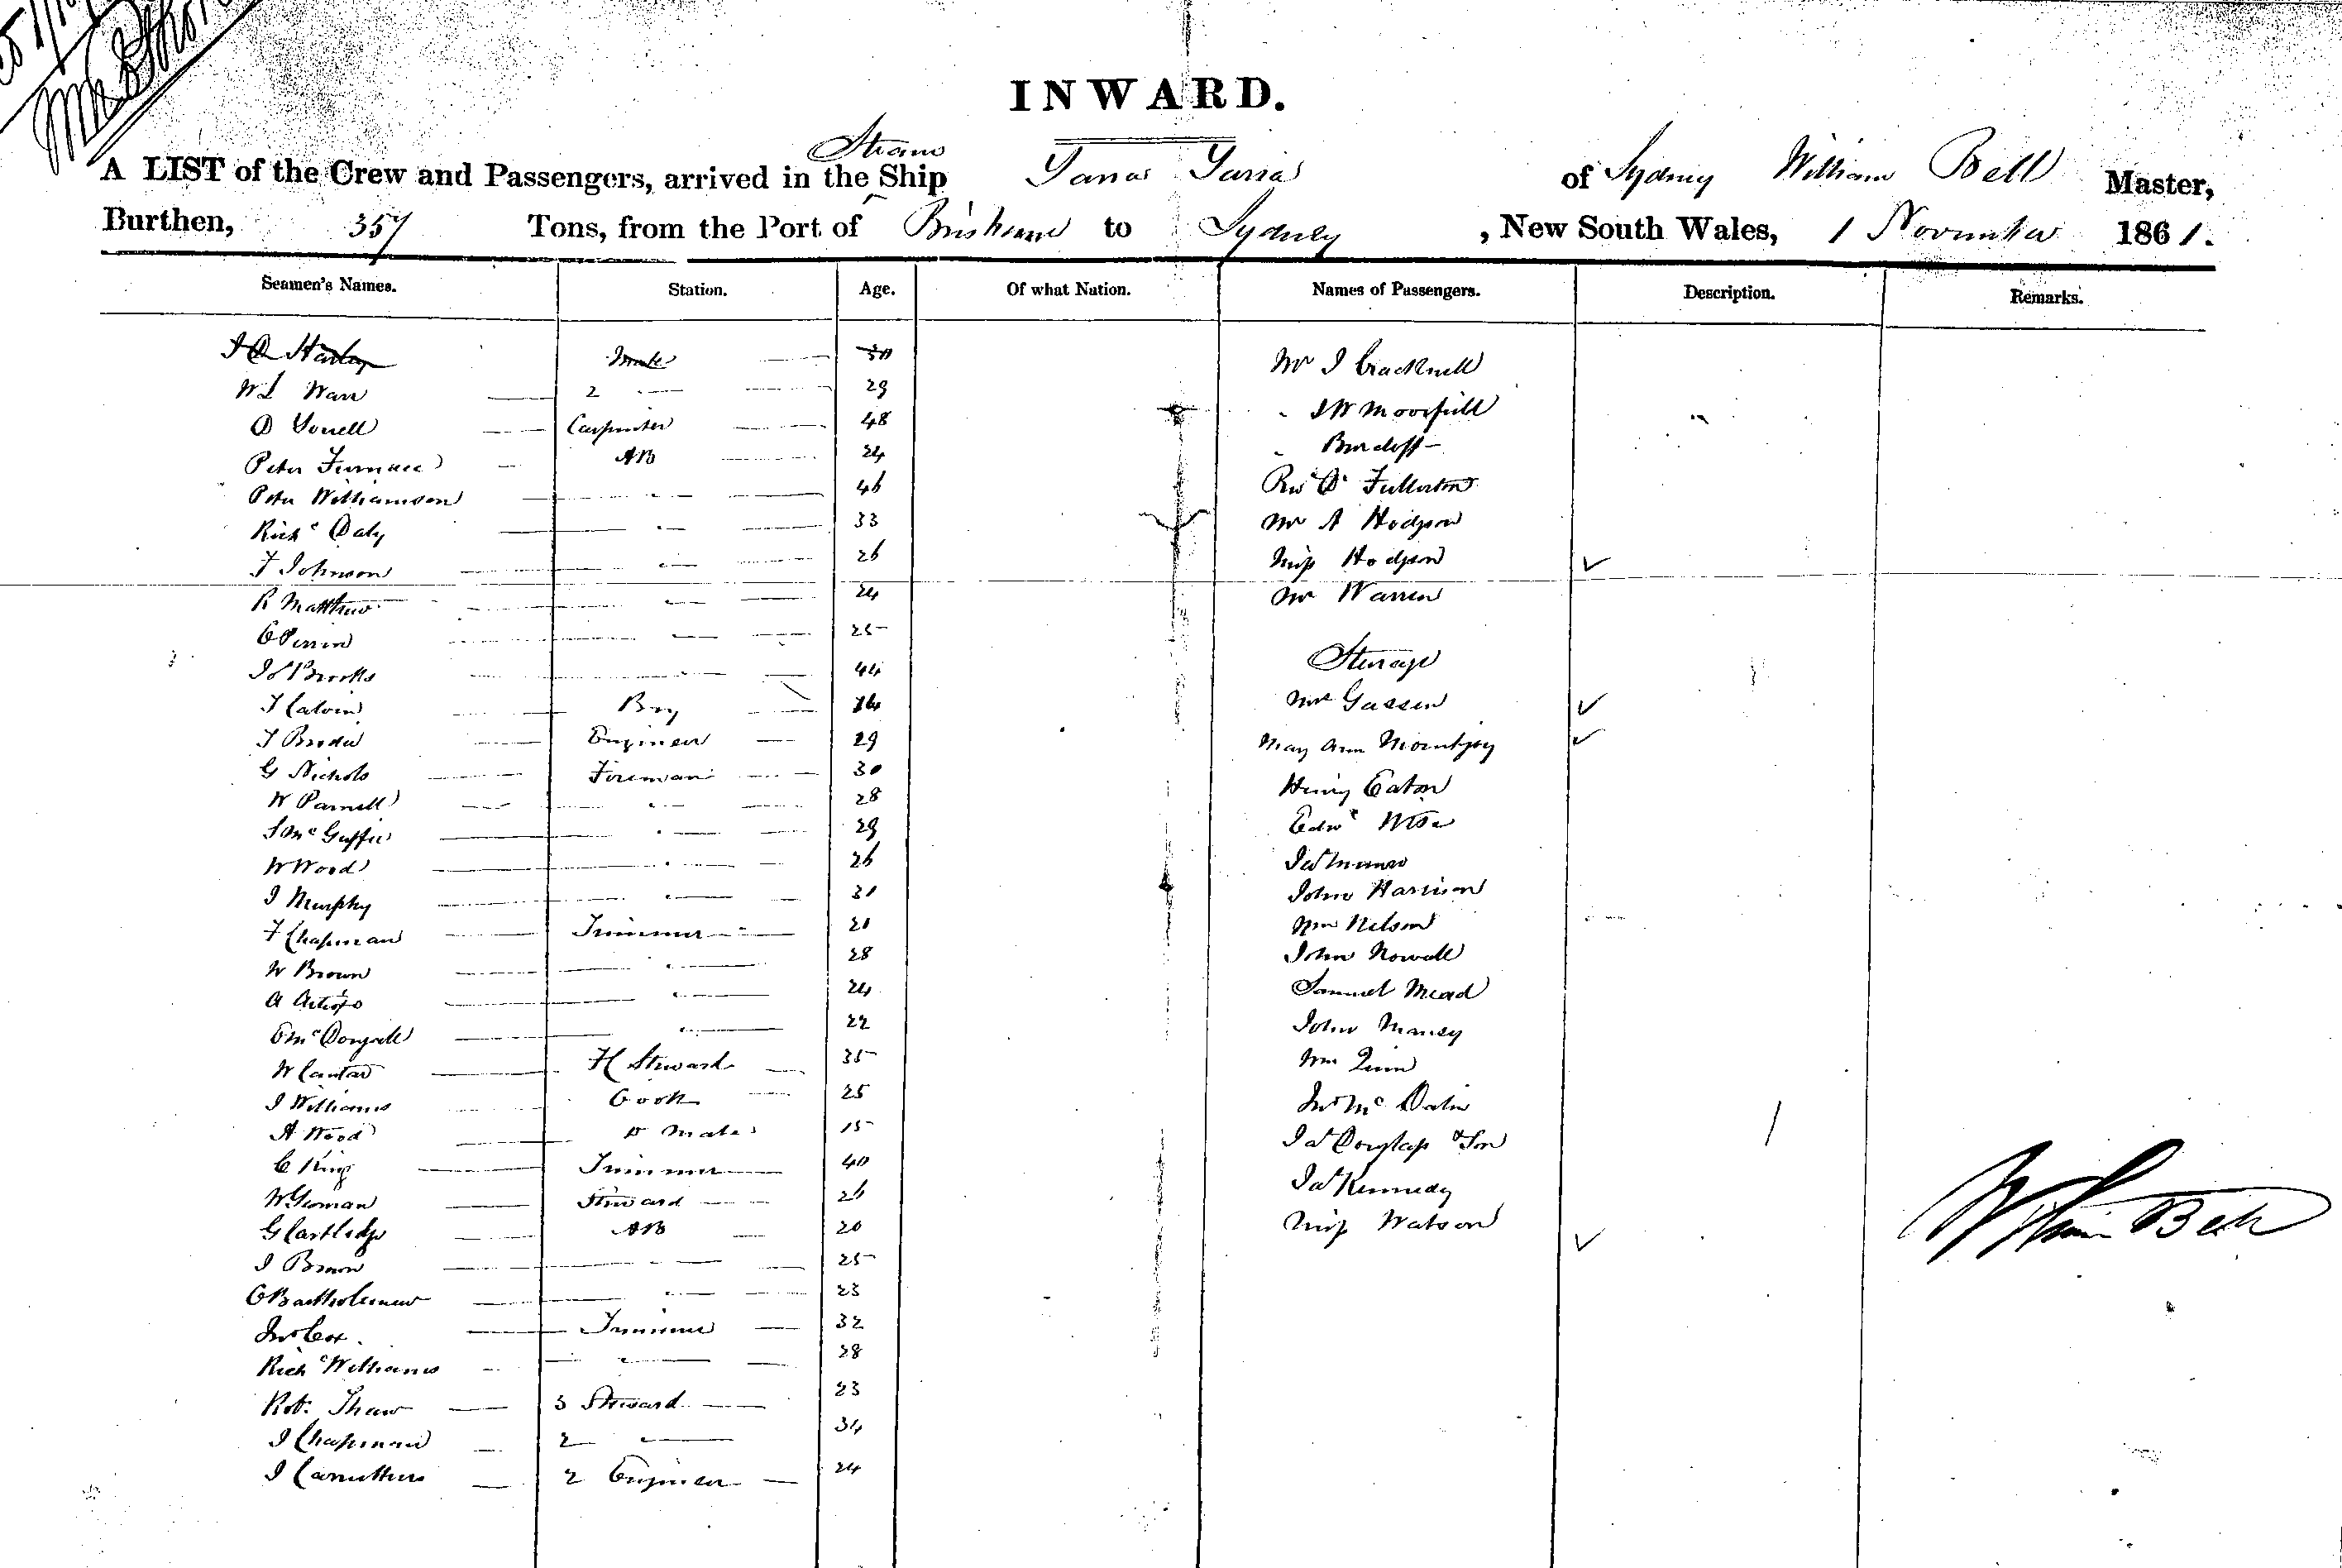 INWARD.
Steam
A LIST of the Crew and Passengers, arrived in the Ship Yarra Yarra of Sydney William Bell Master,
Burthen, 357 Tons, from the Port of Brisbane to Sydney, New South Wales, 1 November 1861.
Seamen's Names. Station. Age. Of what Nation. Names of Passengers. Description. Remarks.
Mate 30 Mr J Cracknell
W L Warr 2 " 29 " J W Moorfield
D Correll Carpenter 48 "
Peter Furnace AB 24 Rev Dr Fullerton
Peter Williamson " 46 Mr A Hodgson
Richd Daly " 33 Miss Hodgson
F Johnson " 26 Mr Warren
R Matthew " 24
C Perrin " 25 Steerage
Js Brooks " 44 Mrs Gassen
T Calvin Boy 16 May Ann Mountjoy
T Brodie Engineer 29 Henry Eaton
G Nichols Fireman 30 Edwd Wise
W Parnell " 28 Jas Munro
J McGuffie " 29 John Harrison
W Wood " 26 Wm Nelson
J Murphy " 31 John Nowell
F Chapman Trimmer 20 Samuel Mead
W Brown " 28 John Maney
A " 24 Wm Quinn
C McDougall " 22 Jno Mc
W Cantor H Steward 35 Jas Douglass & Son
J Williams Cook 25 Jas Kennedy
A Wood Do Mate 15 Miss Watson
C King Trimmer 40
W Yeoman Steward 26 William Bell
G Cartledge AB 20
J Brown " 25
C Bartholemew " 23
Jno Cox. Trimmer 32
Richd Williams " 28
Robt. Shaw 3 Steward 23
J Chapman 2 " 34
J Carruthers 2 Engineer 24